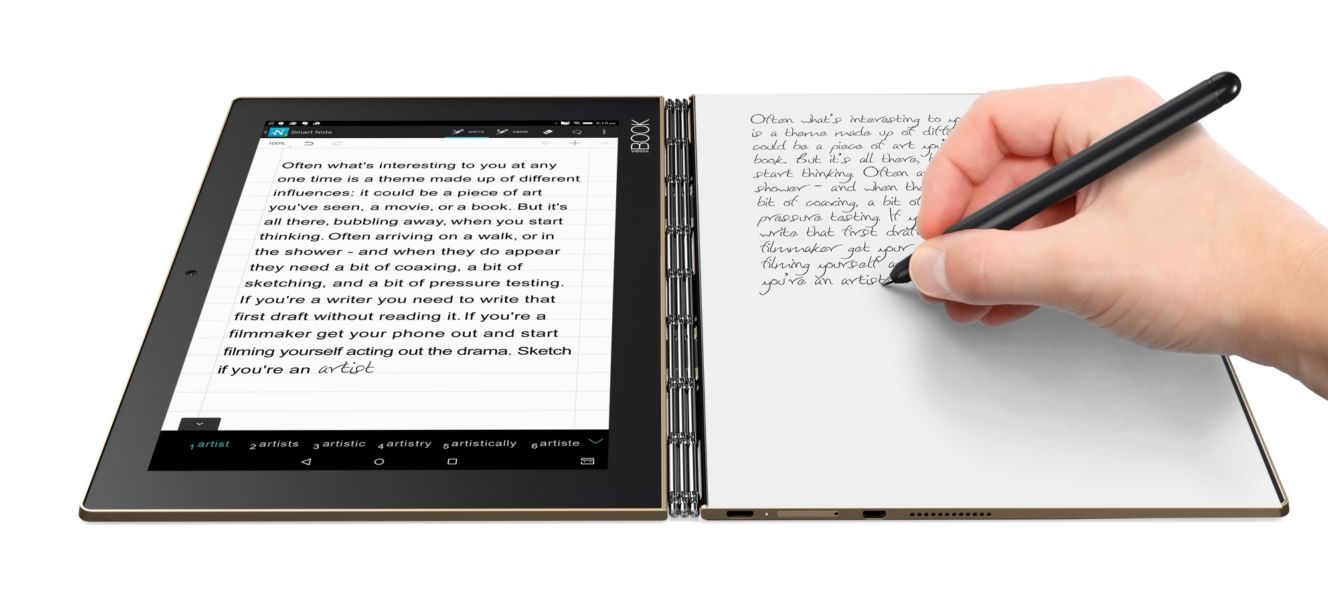 Smart Note
WRITE
DRAW
100%
BOOK
Often what's interesting to you at any
one time is a theme made up of different
influences: it could be a piece of art
you've seen, a movie, or a book. But it's
all there, bubbling away, when you start
thinking. Often arriving on a walk, or in
the shower - and when they do appear
they need a bit of coaxing, a bit of
sketching, and a bit of pressure testing.
If you're a writer you need to write that
first draft without reading it. If you're a
filmmaker get your phone out and start
filming yourself acting out the drama. Sketch
if you're an artist
1 artist 2 artists 3 artistic 4 artistry 5 artistically 6 artiste
Often what's interesting to
is a theme made up of
could be a piece of art
book. But it's all there,
start thinking. Often
shower - and when
bit of coaxing, a bit of
pressure testing. If
write that first
filmmaker get your
filming yourself
you're an artist